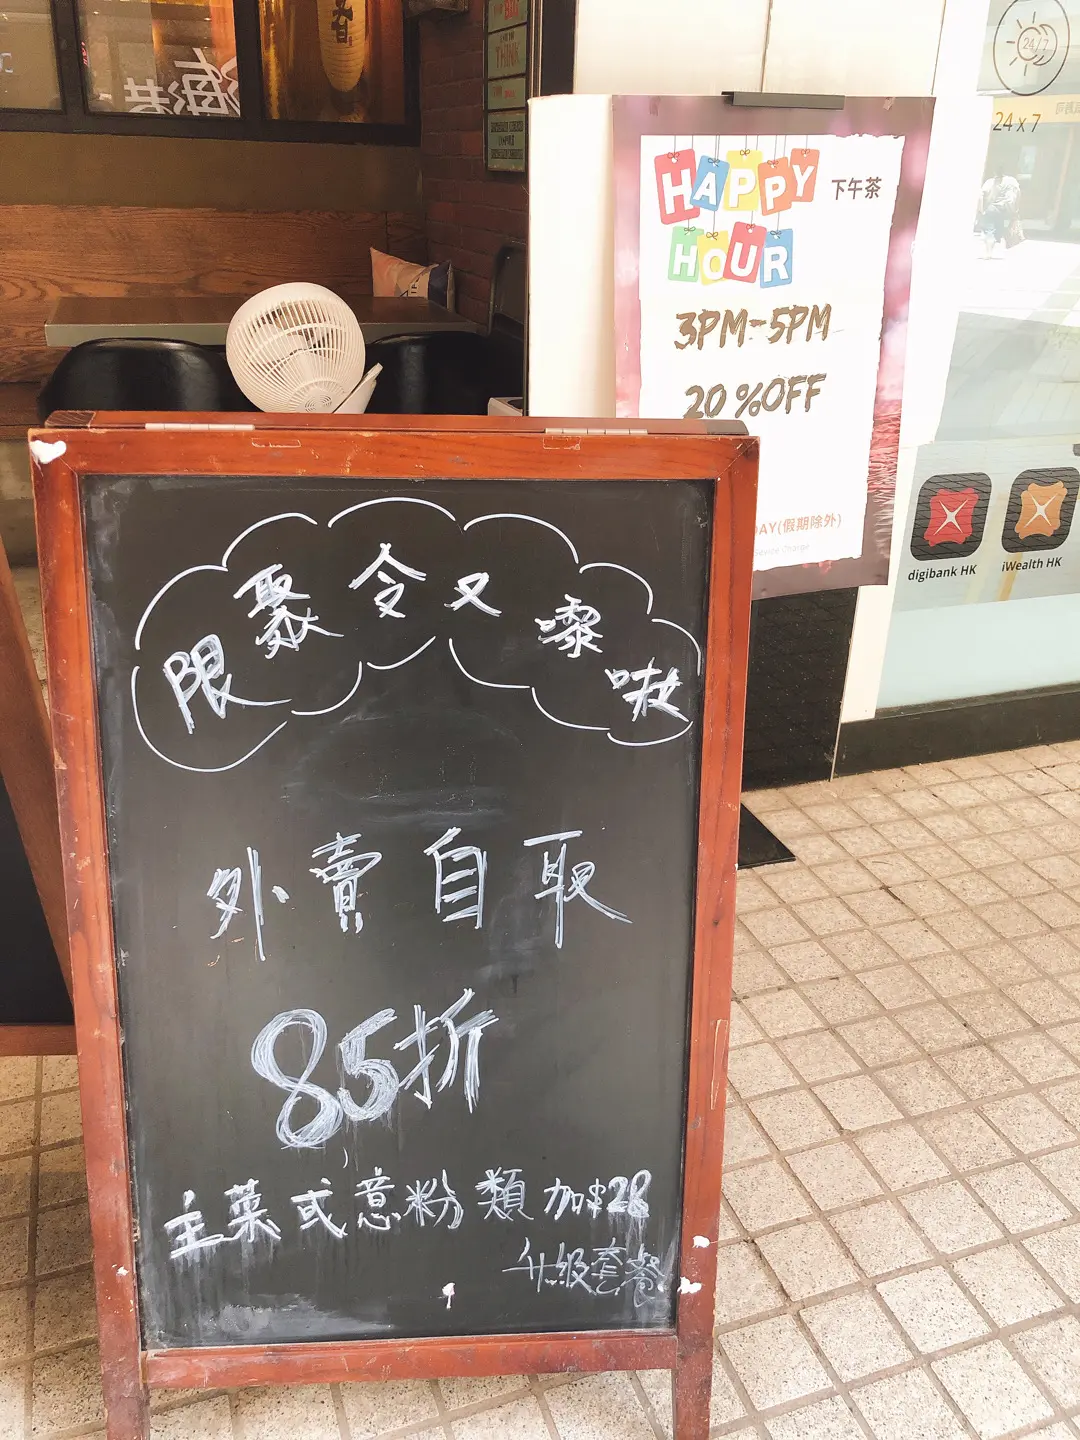 HAPPY
HOUR
下午茶
3PM-5PM
20%OFF
DAY(假期除外)
24/7
24 x 7
digibank HK
iWealth HK
限聚令又嚟啦
外賣自取
85折
主菜或意粉類加$28
升級套餐